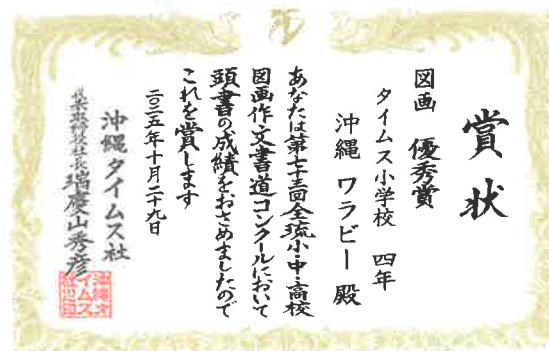 賞状
図画 優秀賞
タイムス小学校 四年
沖縄 ワラビー 殿
あなたは第七十三回全琉小・中・高校
図画作・文書道コンクールにおいて
頭書の成績をおさめましたので
これを賞します
二〇二五年十月二十九日
沖縄タイムス社
代表取締役社長 瑞慶山秀彦